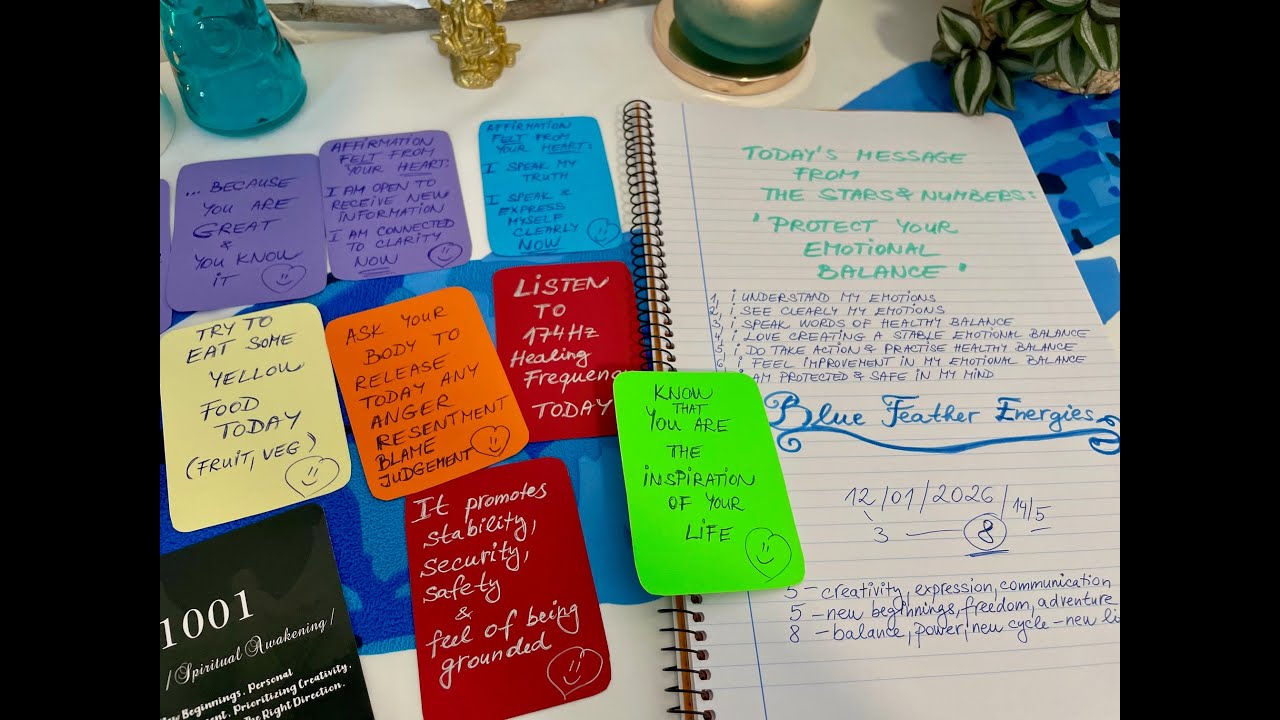 ... BECAUSE
YOU ARE
GREAT
&
YOU KNOW
IT
AFFIRMATION
FELT FROM
YOUR HEART:
I AM OPEN TO
RECEIVE NEW
INFORMATION
I AM CONNECTED
TO CLARITY
NOW
AFFIRMATION
FELT FROM
YOUR HEART:
I SPEAK MY
TRUTH
I SPEAK &
EXPRESS
MYSELF
CLEARLY
NOW
TRY TO
EAT SOME
YELLOW
FOOD
TODAY
(FRUIT, VEG)
ASK YOUR
BODY TO
RELEASE
TODAY ANY
ANGER
RESENTMENT
BLAME
JUDGEMENT
LISTEN
TO
174Hz
Healing
Frequency
TODAY
KNOW
THAT
YOU ARE
THE
INSPIRATION
OF YOUR
LIFE
It promotes
stability,
security,
safety
&
feel of being
grounded
1001
/ Spiritual Awakening /
Beginnings. Personal
Prioritizing Creativity.
The Right Direction.
TODAY'S MESSAGE
FROM
THE STARS & NUMBERS:
' PROTECT YOUR
EMOTIONAL
BALANCE '
1, i UNDERSTAND MY EMOTIONS
2, i SEE CLEARLY MY EMOTIONS
3, i SPEAK WORDS OF HEALTHY BALANCE
4, i LOVE CREATING A STABLE EMOTIONAL BALANCE
5, i DO TAKE ACTION & PRACTISE HEALTHY BALANCE
6, i FEEL IMPROVEMENT IN MY EMOTIONAL BALANCE
i AM PROTECTED & SAFE IN MY MIND
Blue Feather Energies
12/01/2026/14/5
3 — 8
5 – creativity, expression, communication
5 – new beginnings, freedom, adventure
8 – balance, power, new cycle – new